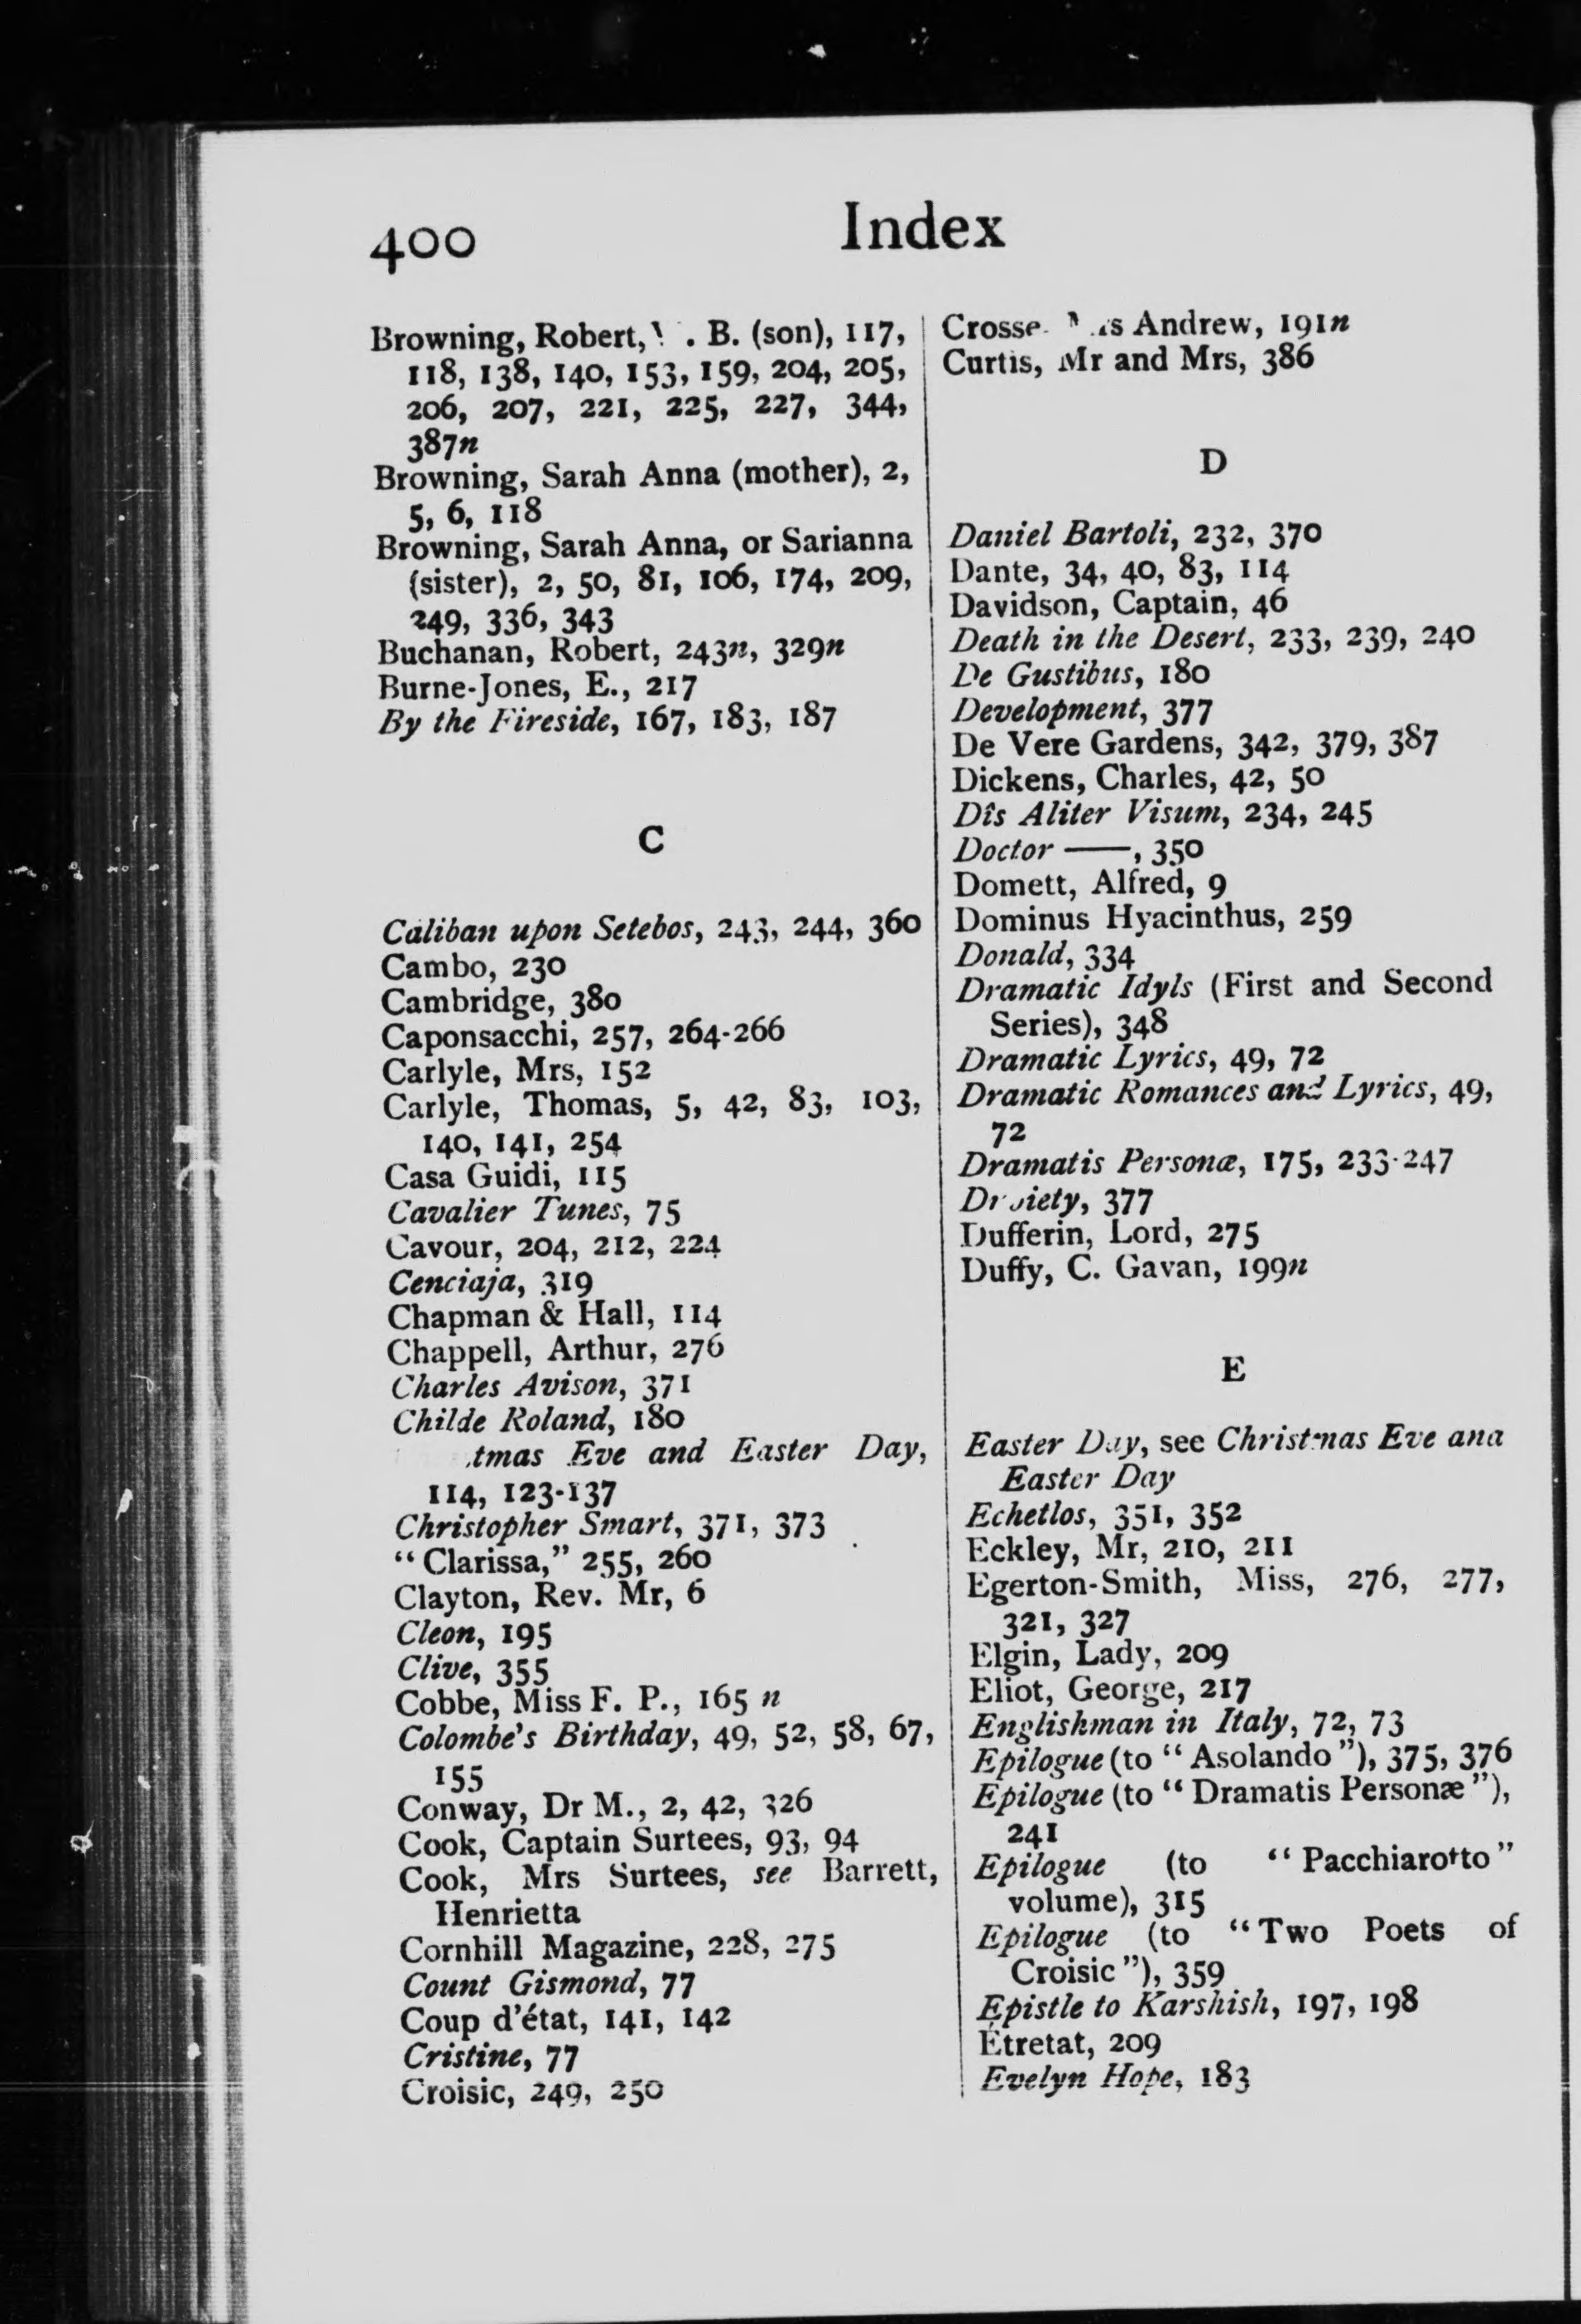 400
Index
Browning, Robert, . B. (son), 117,
118, 138, 140, 153, 159, 204, 205,
206, 207, 221, 225, 227, 344,
387n
Browning, Sarah Anna (mother), 2,
5, 6, 118
Browning, Sarah Anna, or Sarianna
(sister), 2, 50, 81, 106, 174, 209,
249, 336, 343
Buchanan, Robert, 243n, 329n
Burne-Jones, E., 217
By the Fireside, 167, 183, 187
C
Caliban upon Setebos, 243, 244, 360
Cambo, 230
Cambridge, 380
Caponsacchi, 257, 264-266
Carlyle, Mrs, 152
Carlyle, Thomas, 5, 42, 83, 103,
140, 141, 254
Casa Guidi, 115
Cavalier Tunes, 75
Cavour, 204, 212, 224
Cenciaja, 319
Chapman & Hall, 114
Chappell, Arthur, 276
Charles Avison, 371
Childe Roland, 180
tmas Eve and Easter Day,
114, 123-137
Christopher Smart, 371, 373
"Clarissa," 255, 260
Clayton, Rev. Mr, 6
Cleon, 195
Clive, 355
Cobbe, Miss F. P., 165 n
Colombe's Birthday, 49, 52, 58, 67,
155
Conway, Dr M., 2, 42, 326
Cook, Captain Surtees, 93, 94
Cook, Mrs Surtees, see Barrett,
Henrietta
Cornhill Magazine, 228, 275
Count Gismond, 77
Coup d'état, 141, 142
Cristine, 77
Croisic, 249, 250
Crosse Andrew, 191n
Curtis, Mr and Mrs, 386
D
Daniel Bartoli, 232, 370
Dante, 34, 40, 83, 114
Davidson, Captain, 46
Death in the Desert, 233, 239, 240
De Gustibus, 180
Development, 377
De Vere Gardens, 342, 379, 387
Dickens, Charles, 42, 50
Dîs Aliter Visum, 234, 245
Doctor ——, 350
Domett, Alfred, 9
Dominus Hyacinthus, 259
Donald, 334
Dramatic Idyls (First and Second
Series), 348
Dramatic Lyrics, 49, 72
Dramatic Romances and Lyrics, 49,
72
Dramatis Personæ, 175, 233-247
377
Dufferin, Lord, 275
Duffy, C. Gavan, 199n
E
Easter Day, see Christmas Eve and
Easter Day
Echetlos, 351, 352
Eckley, Mr, 210, 211
Egerton-Smith, Miss, 276, 277,
321, 327
Elgin, Lady, 209
Eliot, George, 217
Englishman in Italy, 72, 73
Epilogue (to "Asolando"), 375, 376
Epilogue (to "Dramatis Personæ"),
241
Epilogue (to "Pacchiarotto"
volume), 315
Epilogue (to "Two Poets of
Croisic"), 359
Epistle to Karshish, 197, 198
Étretat, 209
Evelyn Hope, 183